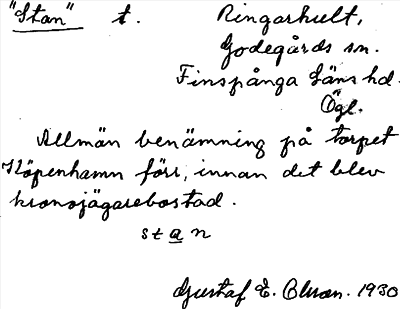 "Stan" t. Ringarhult,
Godegårds sn.
Finspånga läns hd.
Ögl.
Allmän benämning på torpet
Köpenhamn förr, innan det blev
kronojägarebostad.
stan
Gustaf E. Olsson. 1930